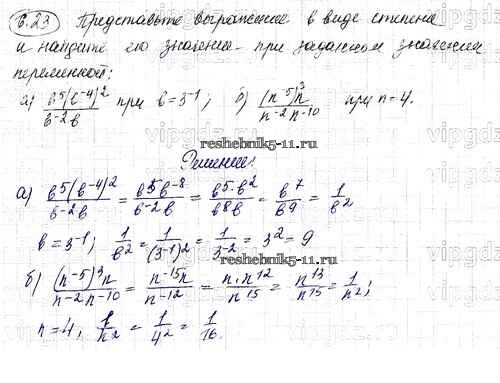 6.23 Представьте выражение в виде степени
и найдите его значение при заданном значении
переменной:
а) b⁵(b⁻⁴)²/b⁻²b при b=3⁻¹; б) (n⁻⁵)³n/n⁻²n⁻¹⁰ при n=4.
reshebnik5-11.ru
Решение:
а) b⁵(b⁻⁴)²/b⁻²b = b⁵b⁻⁸/b⁻²b = b⁵·b²/b⁸b = b⁷/b⁹ = 1/b²
b=3⁻¹; 1/b² = 1/(3⁻¹)² = 1/3⁻² = 3² = 9
reshebnik5-11.ru
б) (n⁻⁵)³n/n⁻²n⁻¹⁰ = n⁻¹⁵n/n⁻¹² = n·n¹²/n¹⁵ = n¹³/n¹⁵ = 1/n²;
n=4, 1/n² = 1/4² = 1/16.